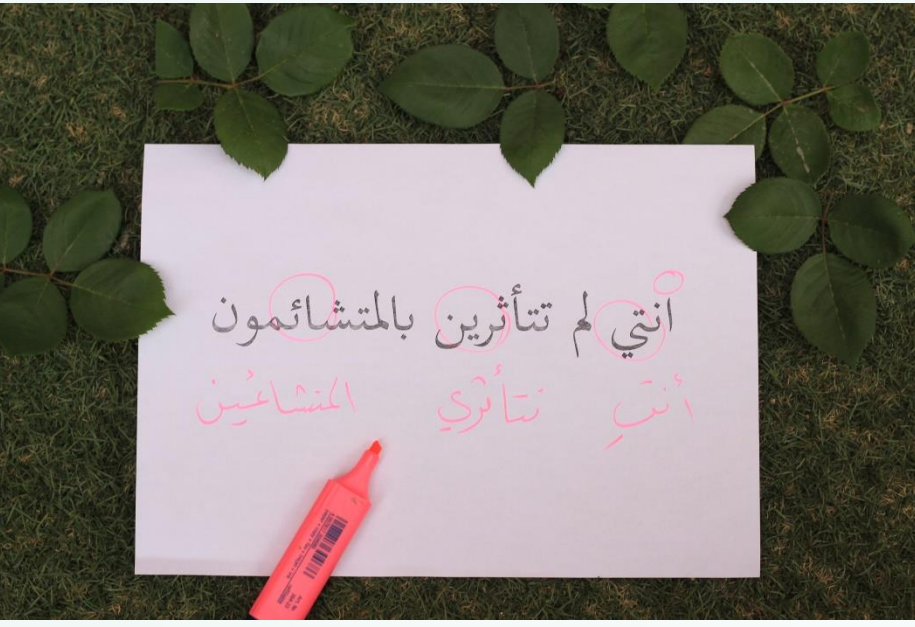 انتي لم تتأثرين بالمتشائمون
أنتِ تتأثري المتشائمين